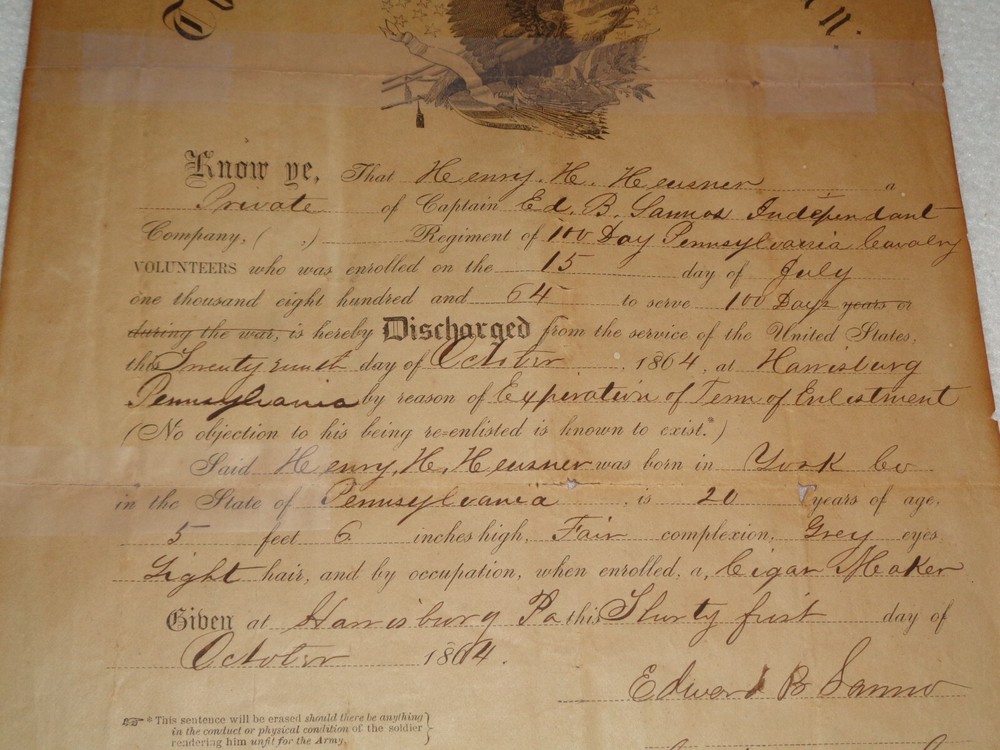 Know ye, That Henry. H. Heusner a
Private of Captain Ed. B. Sannos Independant
Company, ( ,) Regiment of 100 Day Pennsylvania Cavalry
VOLUNTEERS who was enrolled on the 15 day of July
one thousand eight hundred and 64 to serve 100 Days years or
during the war, is hereby Discharged from the service of the United States,
this Twenty day of October, 1864, at Harrisburg
Pennsylvania by reason of Expiration of Term of Enlistment
(No objection to his being re-enlisted is known to exist.*)
Said Henry. H. Heusner was born in York Co
in the State of Pennsylvania, is 20 years of age,
5 feet 6 inches high, Fair complexion, Grey eyes,
Light hair, and by occupation, when enrolled, a, Cigar Maker
Given at Harrisburg Pa this Thirty first day of
October 1864.
Edward B Sanno
* This sentence will be erased should there be anything
in the conduct or physical condition of the soldier
rendering him unfit for the Army.